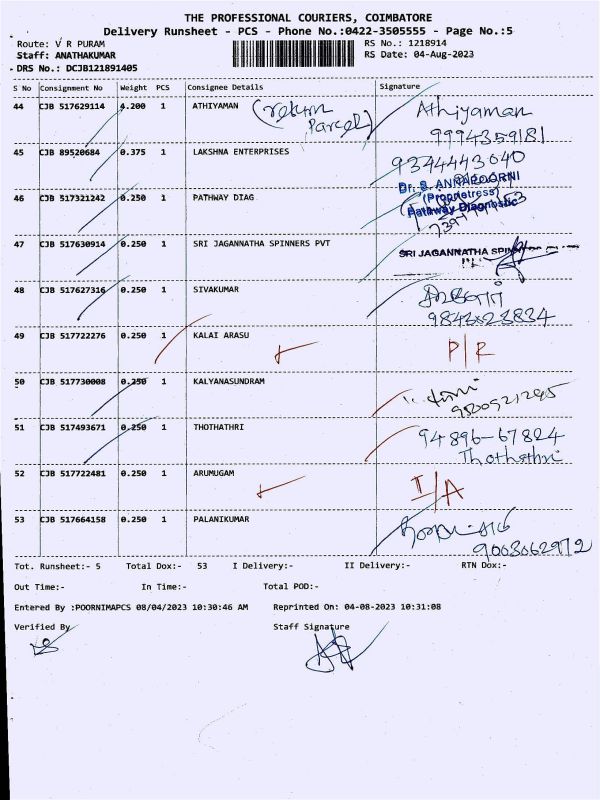 THE PROFESSIONAL COURIERS, COIMBATORE
Delivery Runsheet - PCS - Phone No.:0422-3505555 - Page No.:5
Route: V R PURAM RS No.: 1218914
Staff: ANATHAKUMAR RS Date: 04-Aug-2023
DRS No.: DCJB121891405
S No Consignment No Weight PCS Consignee Details Signature
44 CJB 517629114 4.200 1 ATHIYAMAN (return Parcel) Athiyaman
9994359181
45 CJB 89520684 0.375 1 LAKSHNA ENTERPRISES 9344443040
46 CJB 517321242 0.250 1 PATHWAY DIAG Dr. S. ANNAPOORNI
(Proprietress)
Pathway Diagnostic
47 CJB 517630914 0.250 1 SRI JAGANNATHA SPINNERS PVT SRI JAGANNATHA
48 CJB 517627316 0.250 1 SIVAKUMAR
49 CJB 517722276 0.250 1 KALAI ARASU P/R
50 CJB 517730008 0.250 1 KALYANASUNDRAM
51 CJB 517493671 0.250 1 THOTHATHRI 94896-67824
Thothathri
52 CJB 517722481 0.250 1 ARUMUGAM I/A
53 CJB 517664158 0.250 1 PALANIKUMAR
9003062972
Tot. Runsheet:- 5 Total Dox:- 53 I Delivery:- II Delivery:- RTN Dox:-
Out Time:- In Time:- Total POD:-
Entered By :POORNIMAPCS 08/04/2023 10:30:46 AM Reprinted On: 04-08-2023 10:31:08
Verified By Staff Signature